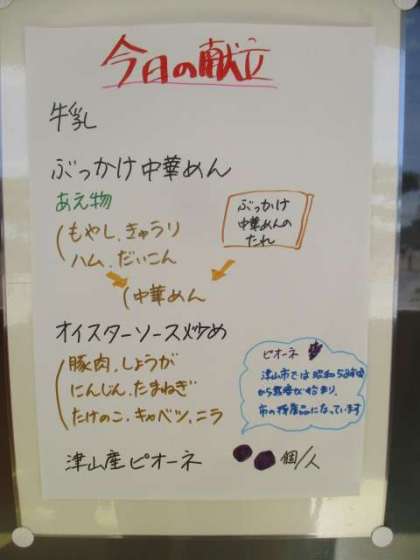 今日の献立
牛乳
ぶっかけ中華めん
あえ物
もやし、きゅうり
ハム、だいこん
ぶっかけ
中華めんの
たれ
中華めん
オイスターソース炒め
豚肉、しょうが
にんじん、たまねぎ
たけのこ、キャベツ、ニラ
ピオーネ
津山市では昭和58年頃
から栽培が始まり、
市の特産品になっています
津山産ピオーネ
個/人